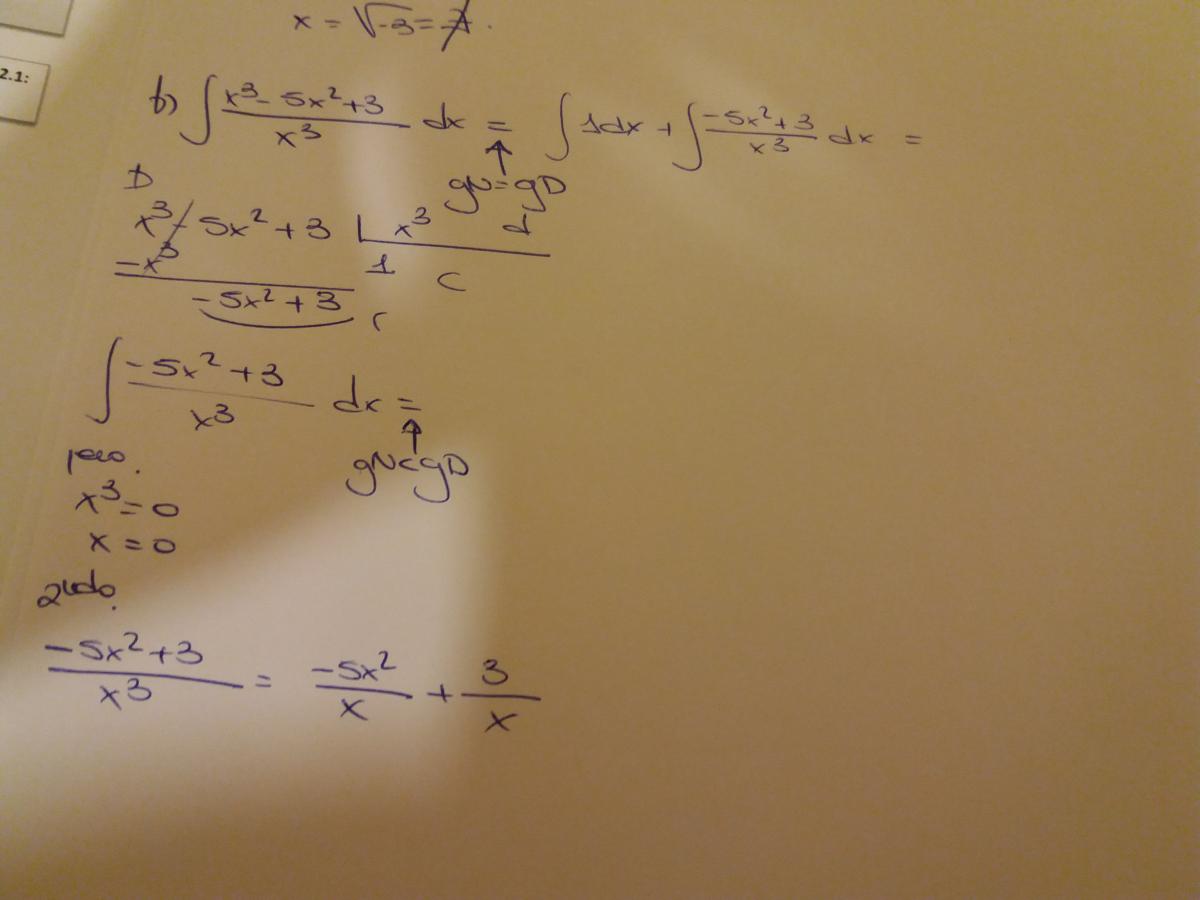 2.1:
x = √-3 = ∄.
b) ∫ (x³ - 5x² + 3)/x³ dx = ∫ 1dx + ∫ (-5x² + 3)/x³ dx =
↑
D gN = gD
x³ - 5x² + 3 | x³ d
-x³ 1 C
-5x² + 3 r
∫ (-5x² + 3)/x³ dx =
↑
gN < gD
x³ = 0
x = 0
(-5x² + 3)/x³ = -5x²/x + 3/x